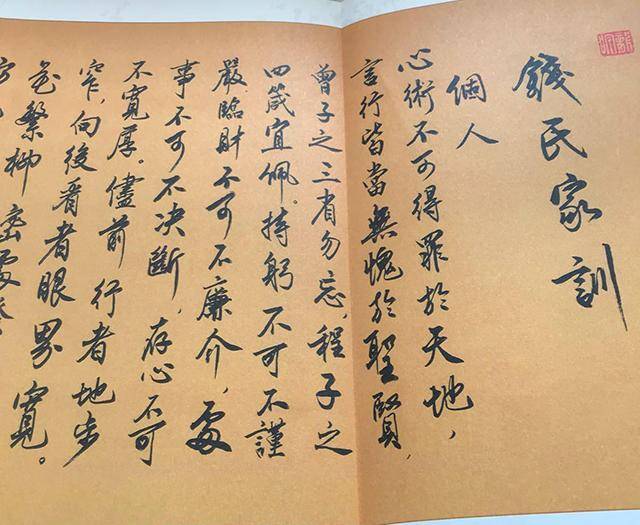 錢氏家訓
個人
心術不可得罪於天地，
言行皆當無愧於聖賢，
曾子之三省勿忘，程子之
四箴宜佩。持躬不可不謹
嚴臨財不可不廉介，處
事不可不决斷，存心不可
不寬厚。儘前行者地步
窄，向後看者眼界寬。
花繁柳密處